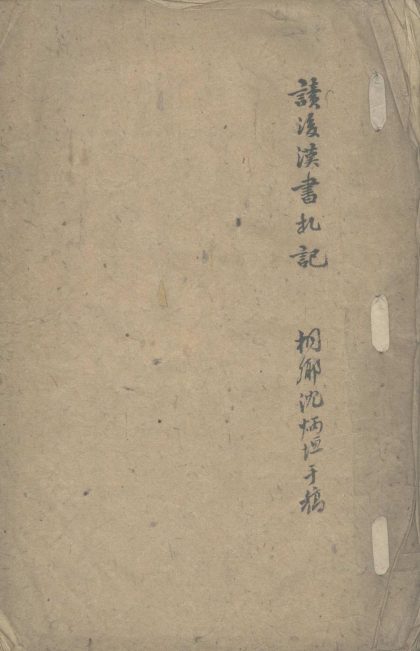 讀後漢書札記 桐鄉沈炳垣手稿